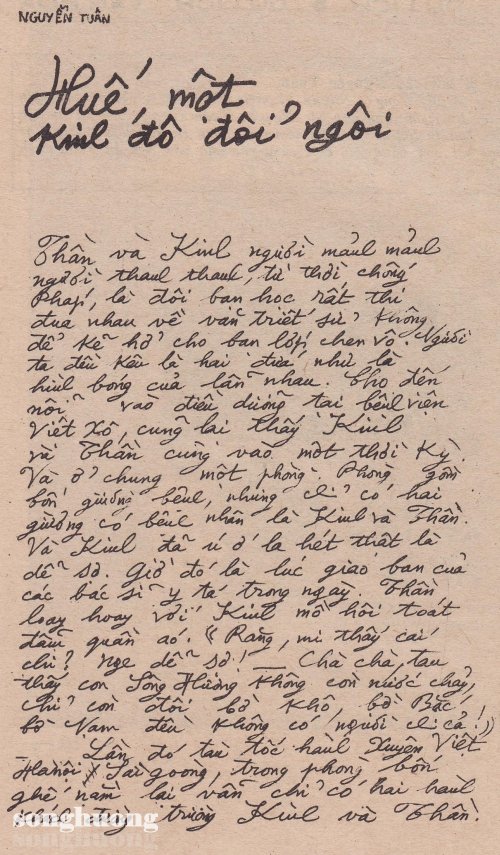 NGUYỄN TUÂN
Huế, một
Kinh đô đổi ngôi
Thần và Kinh người mảnh mảnh
người thanh thanh, từ thời chống
Pháp, là đôi bạn học rất thi
đua nhau về văn triết sử không
để kẽ hở cho bạn lớp chen vô. Người
ta đều kêu là hai đứa như là
hình bóng của lẫn nhau. Cho đến
nỗi vào điều dưỡng tại bệnh viện
Việt Xô, cũng lại thấy Kinh
và Thần cùng vào một thời kỳ.
Và ở chung một phòng. Phòng gồm
bốn giường bệnh, nhưng chỉ có hai
giường có bệnh nhân là Kinh và Thần.
Và Kinh đã ú ớ la hét thật là
dễ sợ. Giờ đó là lúc giao ban của
các bác sĩ y tá trong ngày. Thần
loay hoay với Kinh mồ hôi toát
đẫm quần áo. "Rằng, mi thấy cái
chi? Nge dễ sợ! — Chà chà, tau
thấy con Sông Hương không còn nước chảy,
chỉ còn đôi bờ khô, bờ Bắc
bờ Nam đều không có người chi cả!"
Lần đó tau tốc hành Xuyên Việt
Hànội Sàigoòng, trong phòng bốn
ghế nằm lại vẫn chỉ có hai hành
Kinh và Thần.
songhuong